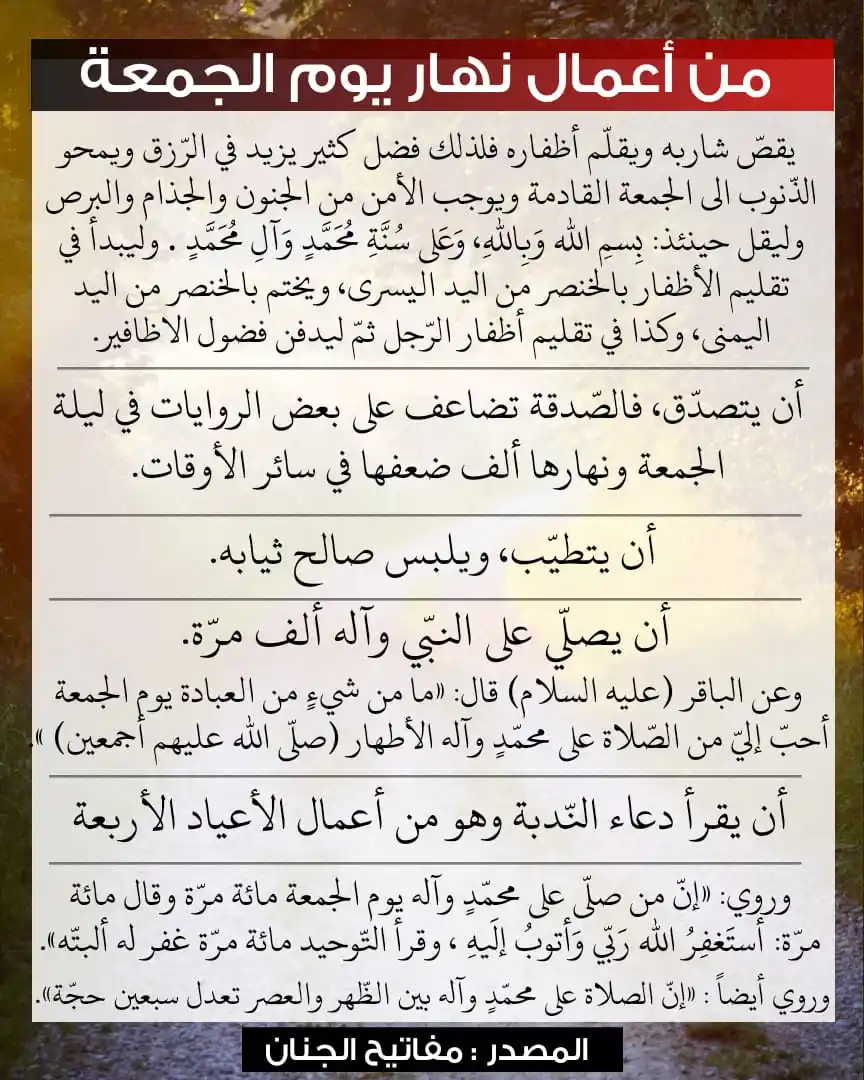 من أعمال نهار يوم الجمعة
يقصّ شاربه ويقلّم أظفاره فلذلك فضل كثير يزيد في الرّزق ويمحو
الذّنوب الى الجمعة القادمة ويوجب الأمن من الجنون والجذام والبرص
وليقل حينئذ: بِسمِ الله وَبِاللهِ، وَعَلى سُنَّةِ مُحَمَّدٍ وَآلِ مُحَمَّدٍ . وليبدأ في
تقليم الأظفار بالخنصر من اليد اليسرى، ويختم بالخنصر من اليد
اليمنى، وكذا في تقليم أظفار الرّجل ثمّ ليدفن فضول الاظافير.
أن يتصدّق، فالصّدقة تضاعف على بعض الروايات في ليلة
الجمعة ونهارها ألف ضعفها في سائر الأوقات.
أن يتطيّب، ويلبس صالح ثيابه.
أن يصلّي على النبّي وآله ألف مرّة.
وعن الباقر (عليه السلام) قال: «ما من شيءٍ من العبادة يوم الجمعة
أحبّ إليّ من الصّلاة على محمّدٍ وآله الأطهار (صلّى الله عليهم أجمعين) ».
أن يقرأ دعاء النّدبة وهو من أعمال الأعياد الأربعة
وروي: «إنّ من صلّى على محمّدٍ وآله يوم الجمعة مائة مرّة وقال مائة
مرّة: أستَغفِرُ الله رَبّي وَأتوبُ إلَيهِ ، وقرأ التّوحيد مائة مرّة غفر له ألبتّه».
وروي أيضاً : «إنّ الصلاة على محمّدٍ وآله بين الظّهر والعصر تعدل سبعين حجّة».
المصدر : مفاتيح الجنان